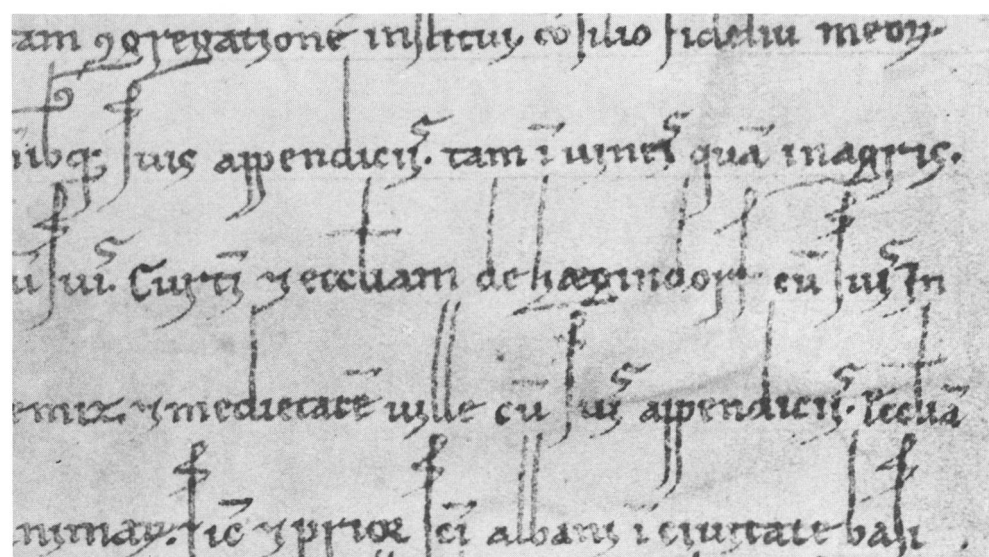 am ꝯgregationē institui, cōsilio fideliū meoꝝ.
ibꝫ suis appendiciis. tam ī vineis quā in agris.
ū suis. Curtī ⁊ eccłiam de hægindorf cū suis In
⁊ medietatē ville cū suis appendiciis. eccłiā
nimaꝝ. sic ⁊ prior sc̄i albani ī civitate basi